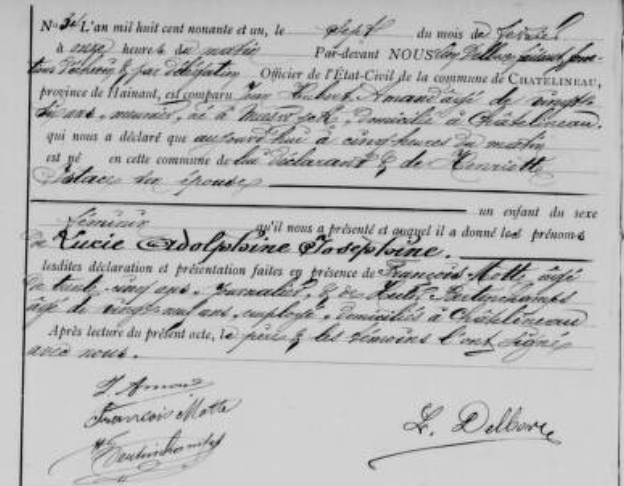 No 34 L'an mil huit cent nonante et un, le sept du mois de février
à onze heures du matin Par-devant NOUS Delbove,
d'échevin & par délégation Officier de l'État-Civil de la commune de CHATELINEAU,
province de Hainaut, est comparu Jean Hubert Amand âgé de vingt-
ans, meunier, né à domicilié à Châtelineau.
qui nous a déclaré que aujourd'hui à cinq heures du matin
est né en cette commune de lui déclarant & de Henriette
son épouse
un enfant du sexe
féminin qu'il nous a présenté et auquel il a donné les prénoms
de Lucie Adolphine Joséphine.
lesdites déclaration et présentation faites en présence de François Motte, âgé
de trente-cinq ans, journalier, & de
âgé de vingt-neuf ans, employé, domiciliés à Châtelineau
Après lecture du présent acte, le père & les témoins l'ont signé
avec nous.
J Amand
François Motte
L. Delbove